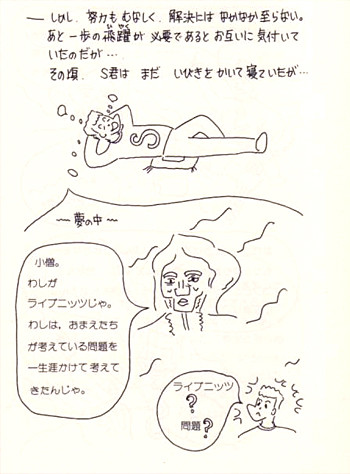 ― しかし、努力もむなしく、解決にはなかなか至らない。
あと一歩の飛躍が必要であるとお互いに気付いて
いたのだが…
その頃、S君は まだ いびきをかいて寝ていたが…
S
～夢の中～
小僧。
わしが
ライプニッツじゃ。
わしは，おまえたち
が考えている問題を
一生涯かけて考えて
きたんじゃ。
ライプニッツ
?
問題?